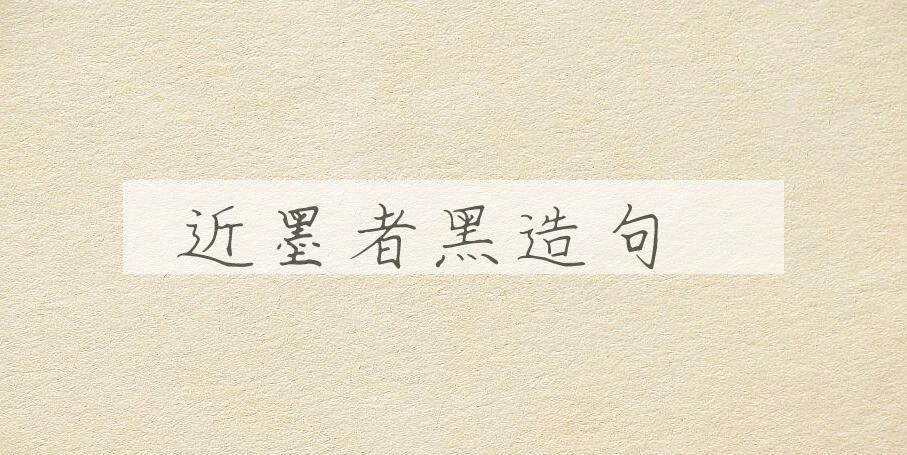 近墨者黑造句